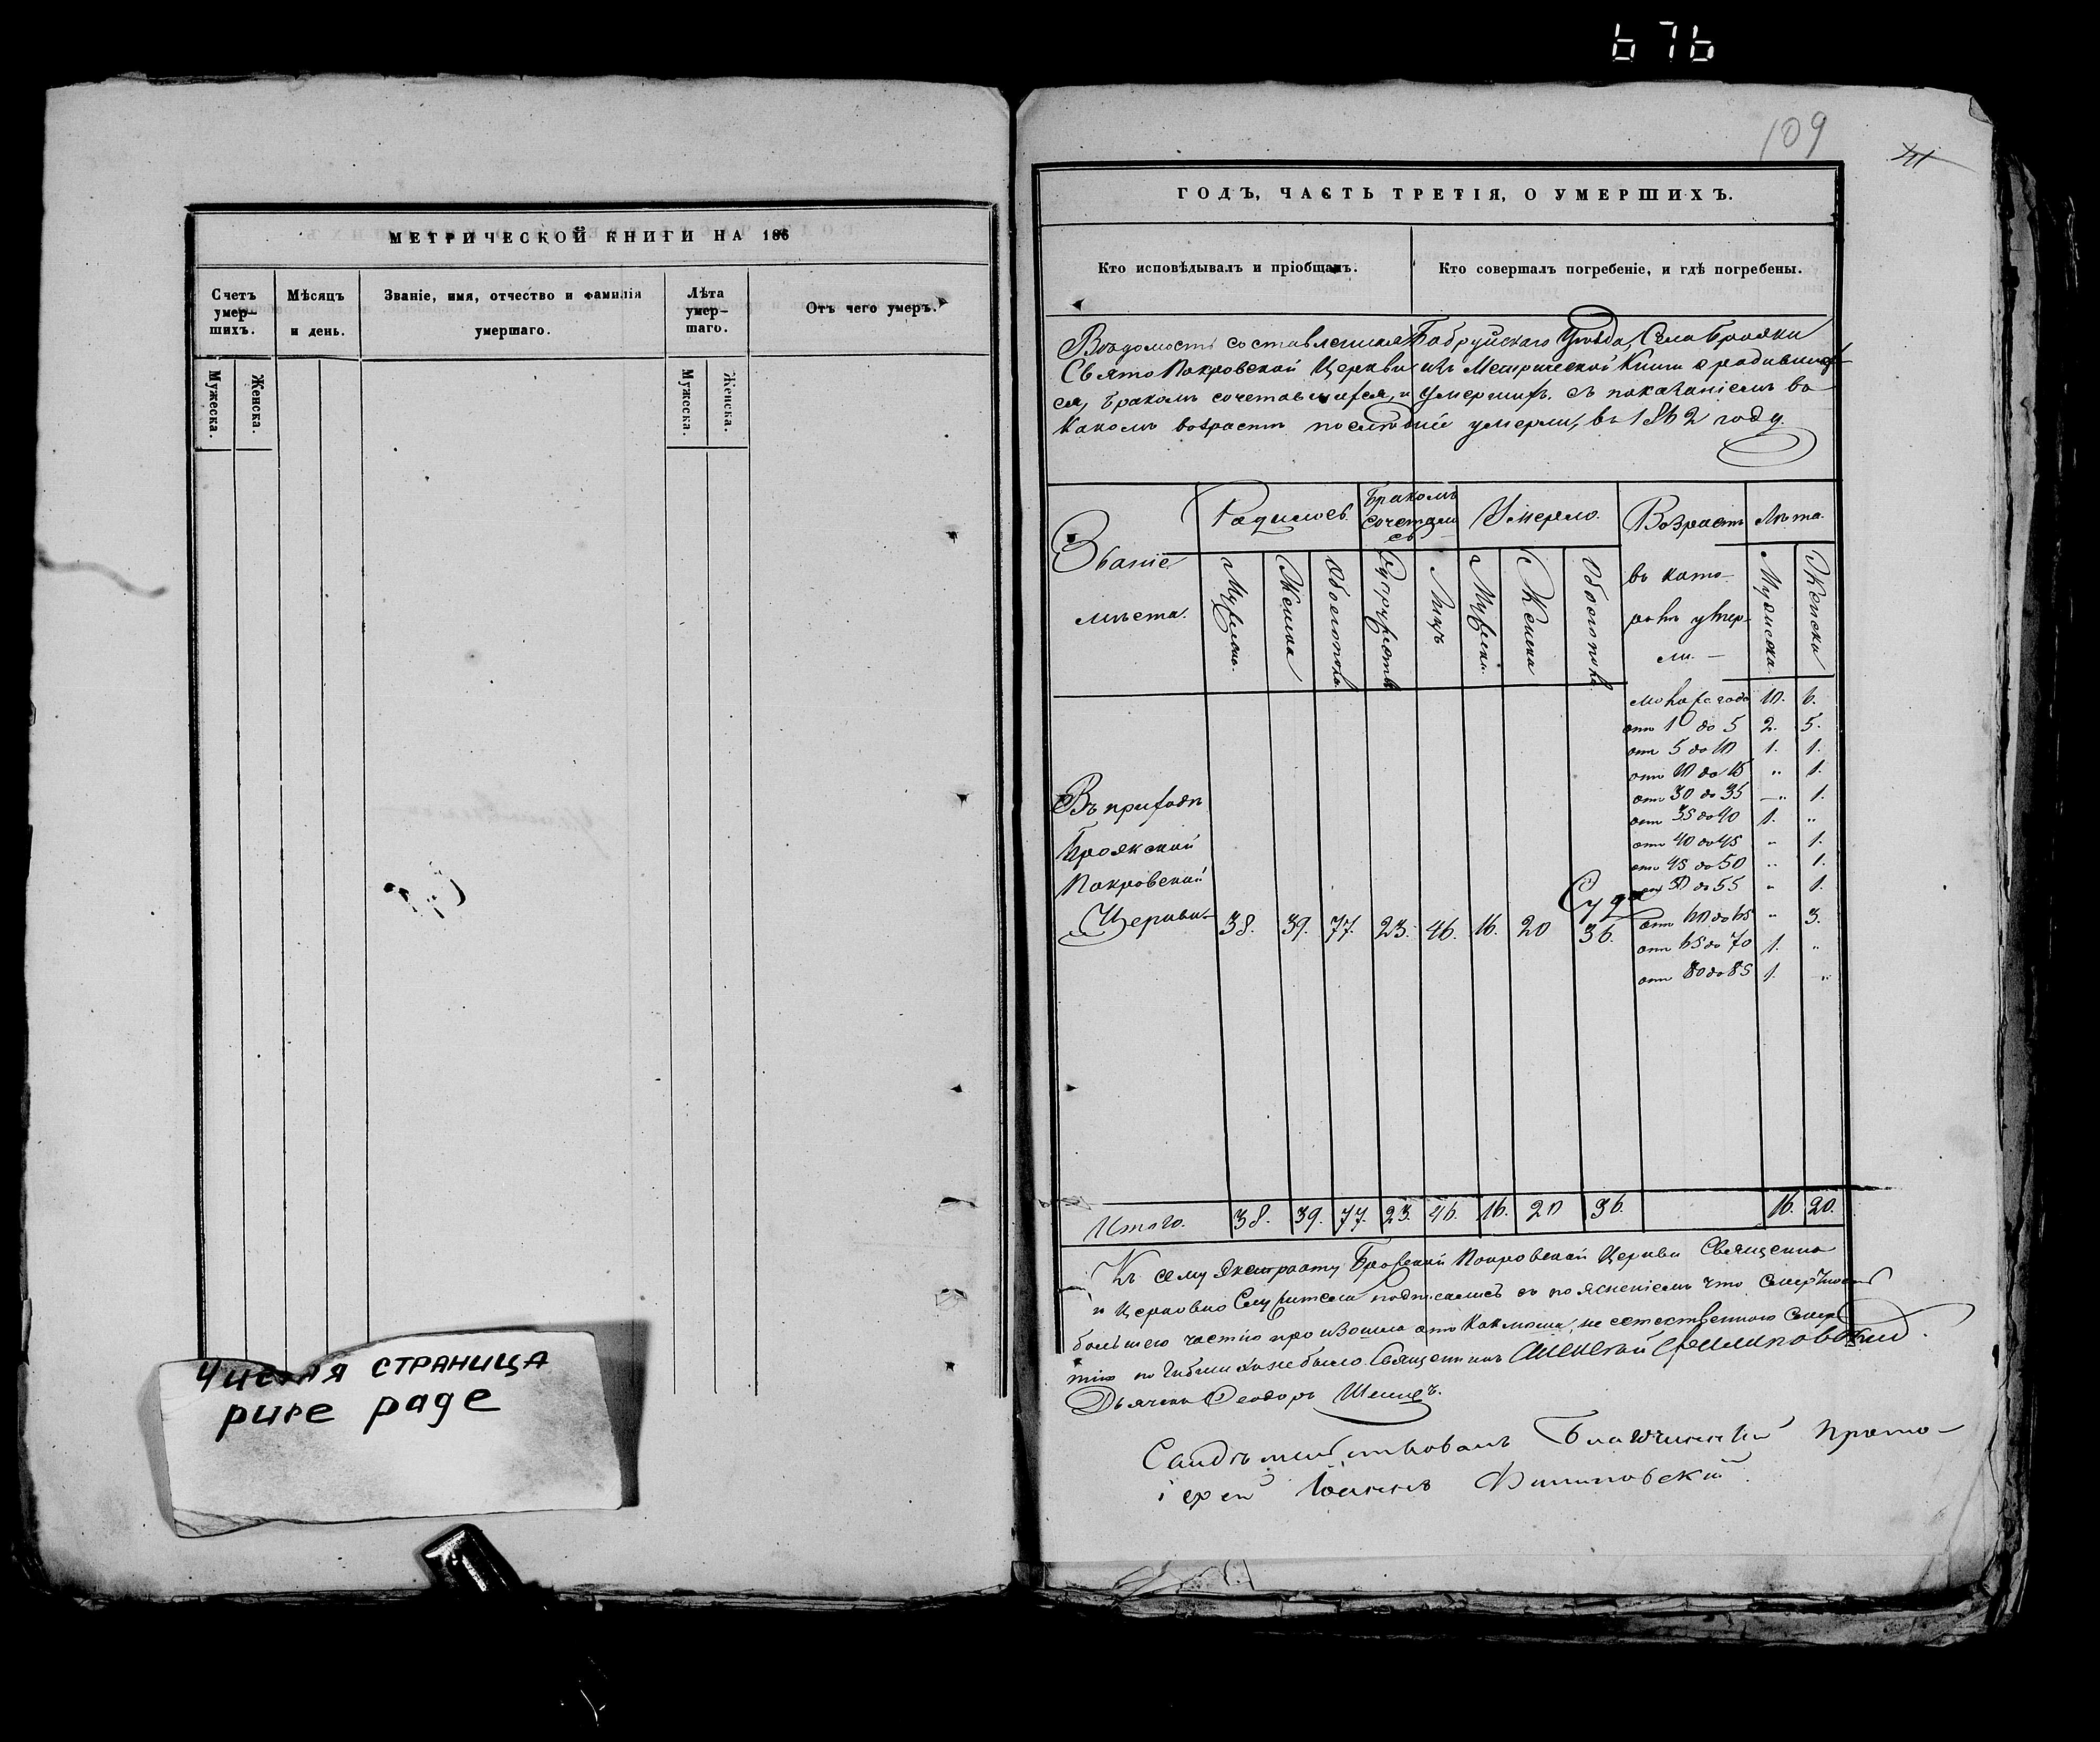 676
МЕТРИЧЕСКОЙ КНИГИ НА 186
Счетъ умер-шихъ.
Мужеска.
Женска.
Мѣсяцъ и день.
Званіе, имя, отчество и фамилія умершаго.
Лѣта умер-шаго.
Мужеска.
Женска.
Отъ чего умеръ.
Чистая страница
pure page
109
ГОДЪ, ЧАСТЬ ТРЕТІЯ, О УМЕРШИХЪ.
Кто исповѣдывалъ и пріобщалъ.
Кто совершалъ погребеніе, и гдѣ погребены.
Вѣдомость составленная Бобруйскаго Уѣзда, Села Брожки
Свято Покровской Церкви изъ Метрической Книги о родивших
ся, бракомъ сочетавшихся, и умершихъ. съ показаніемъ во
какомъ возрастѣ послѣдніе умерли, въ 1862 году.
Званіе мѣста.
Родилось.
Бракомъ сочетали сь
Умерло.
Возрастъ въ кото- ромъ умер- ли.
Лѣта.
Мужска.
Женска
Обоего пола.
Супружествъ
Лицъ
Мужска.
Женска
Обоего пола
Мужиска.
Женска
менѣе года 10. 6.
отъ 1 до 5 2. 5.
отъ 5 до 10 1. 1.
отъ 10 до 15 „ 1.
отъ 30 до 35 „ 1.
отъ 35 до 40 1. „
отъ 40 до 45 „ 1.
отъ 45 до 50 „ 1.
отъ 50 до 55 „ 1.
отъ 60 до 65 „ 3.
отъ 65 до 70 1. „
отъ 80 до 85 1. „
Въ приходѣ
Покровской
Церкви 38. 39. 77. 23. 46. 16. 20 36.
Итого. 38. 39. 77. 23. 46. 16. 20 36. 16. 20.
Къ сему экстракту Брожской Покровской Церкви Священно
и Церковно Служители подписались съ поясненіемъ что смертность
большею частію произошла отъ Коклюша, не естественною смер
тію погибшихъ не было Священникъ Алексѣй Филиповскій.
Дьячекъ Ѳеодоръ
Свидѣтельствовалъ Благочинный Прото-
іерей Іоаннъ Филиповскій